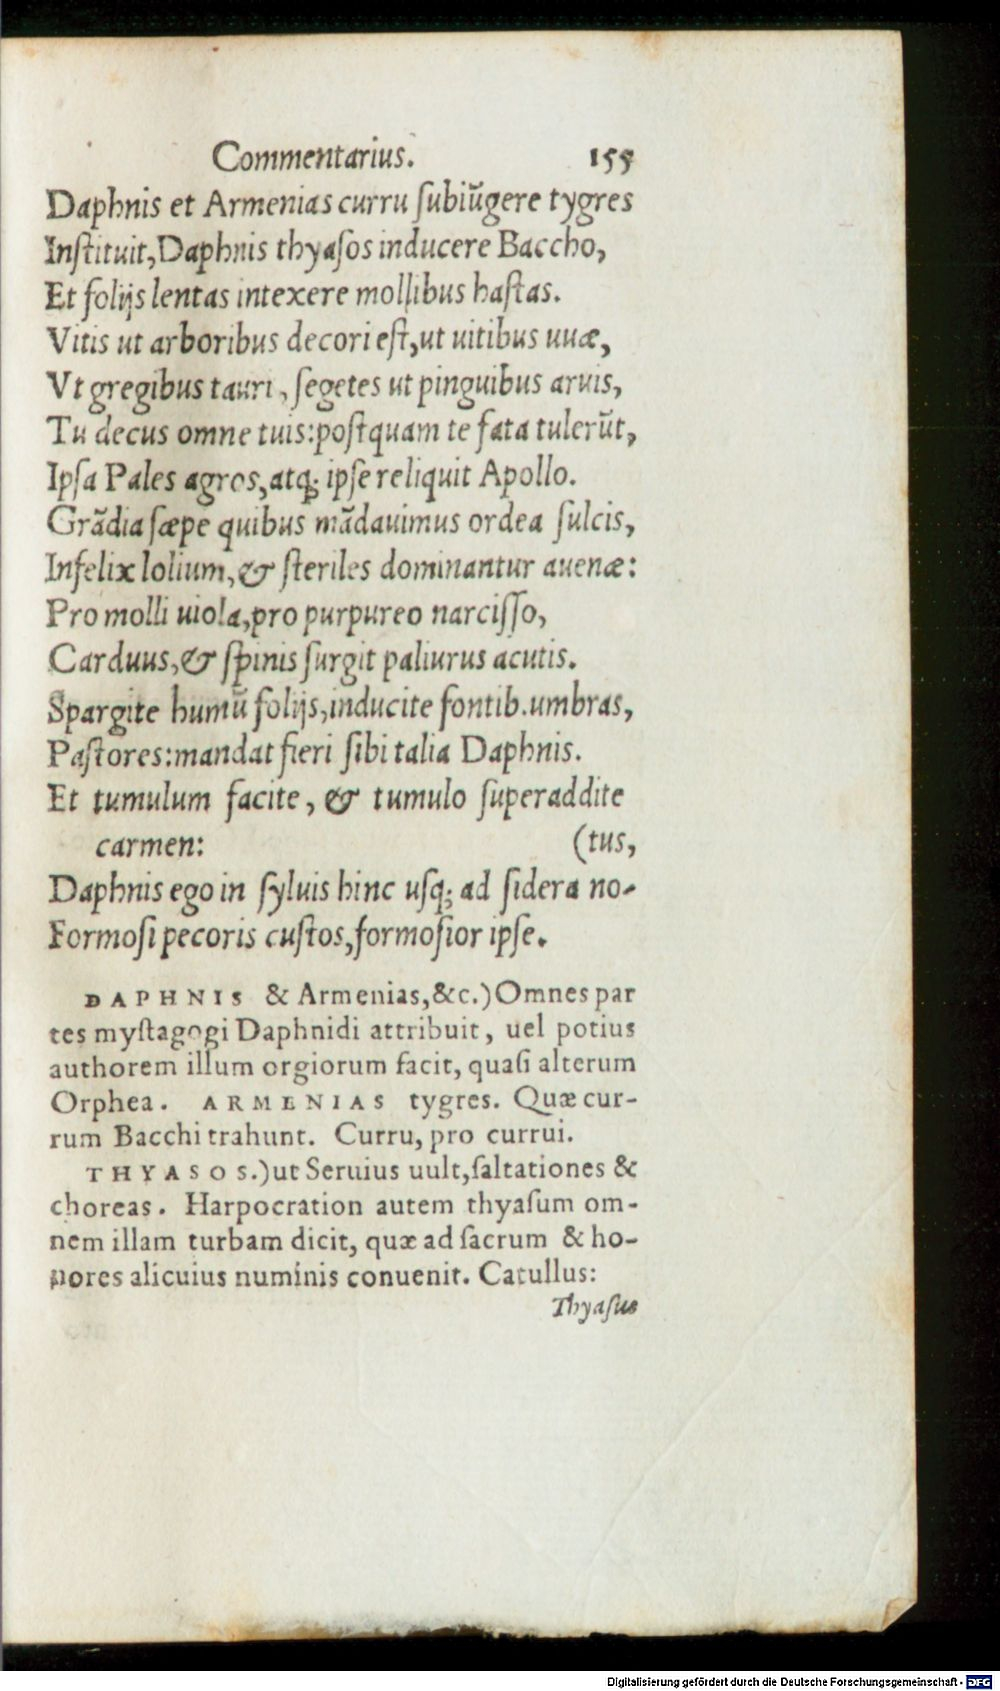 Commentarius. 155
Daphnis et Armenias curru ſubiũgere tygres
Inſtituit, Daphnis thyaſos inducere Baccho,
Et folijs lentas intexere mollibus haſtas.
Vitis ut arboribus decori eſt, ut uitibus uuæ,
Vt gregibus tauri, ſegetes ut pinguibus aruis,
Tu decus omne tuis: poſtquam te fata tulerũt,
Ipſa Pales agros, atq; ipſe reliquit Apollo.
Grãdia ſæpe quibus mãdauimus ordea ſulcis,
Infelix lolium, & ſteriles dominantur auenæ:
Pro molli uiola, pro purpureo narciſſo,
Carduus, & ſpinis ſurgit paliurus acutis.
Spargite humũ folijs, inducite fontib. umbras,
Paſtores: mandat fieri ſibi talia Daphnis.
Et tumulum facite, & tumulo ſuperaddite
carmen: (tus,
Daphnis ego in ſyluis hinc uſq; ad ſidera no-
Formoſi pecoris cuſtos, formoſior ipſe.
DAPHNIS & Armenias, &c.) Omnes par
tes myſtagogi Daphnidi attribuit, uel potius
authorem illum orgiorum facit, quaſi alterum
Orphea. ARMENIAS tygres. Quæ cur-
rum Bacchi trahunt. Curru, pro currui.
THYASOS.) ut Seruius uult, ſaltationes &
choreas. Harpocration autem thyaſum om-
nem illam turbam dicit, quæ ad ſacrum & ho-
nores alicuius numinis conuenit. Catullus:
Thyaſus
Digitalisierung gefördert durch die Deutsche Forschungsgemeinschaft - DFG